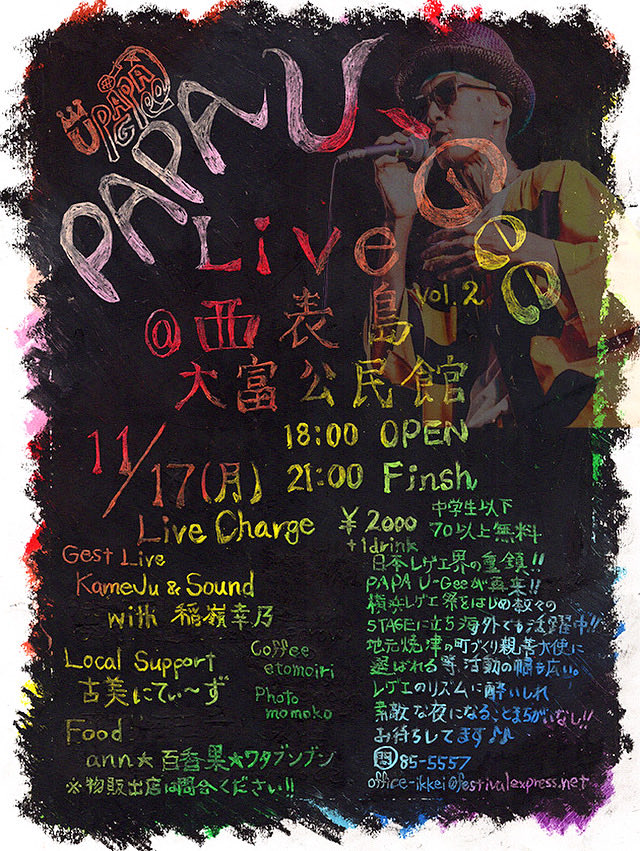 UPAPA Gee
PAPA U-Gee
Live
vol.2
@西表島
大富公民館
11/17(月)
18:00 OPEN
21:00 Finsh
Live Charge ¥2000
+1drink
中学生以下
70以上無料
Gest Live
KameJu & Sound
with 稲嶺幸乃
Local Support
古美にてぃ〜ず
Coffee
etomoiri
Photo
momoko
Food
ann★百香果★ワタブンブン
※物販出店は問合ください!!
日本レゲエ界の重鎮!!
PAPA U-Geeが再来!!
横浜レゲエ祭をはじめ数々の
STAGEに立ち海外でも活躍中!!
地元焼津の町づくり親善大使に
選ばれる等、活動の幅も広い。
レゲエのリズムに酔いしれ
素敵な夜になることまちがいなし!!
お待ちしてます♪♪
問85-5557
office-ikkei@festivalexpress.net